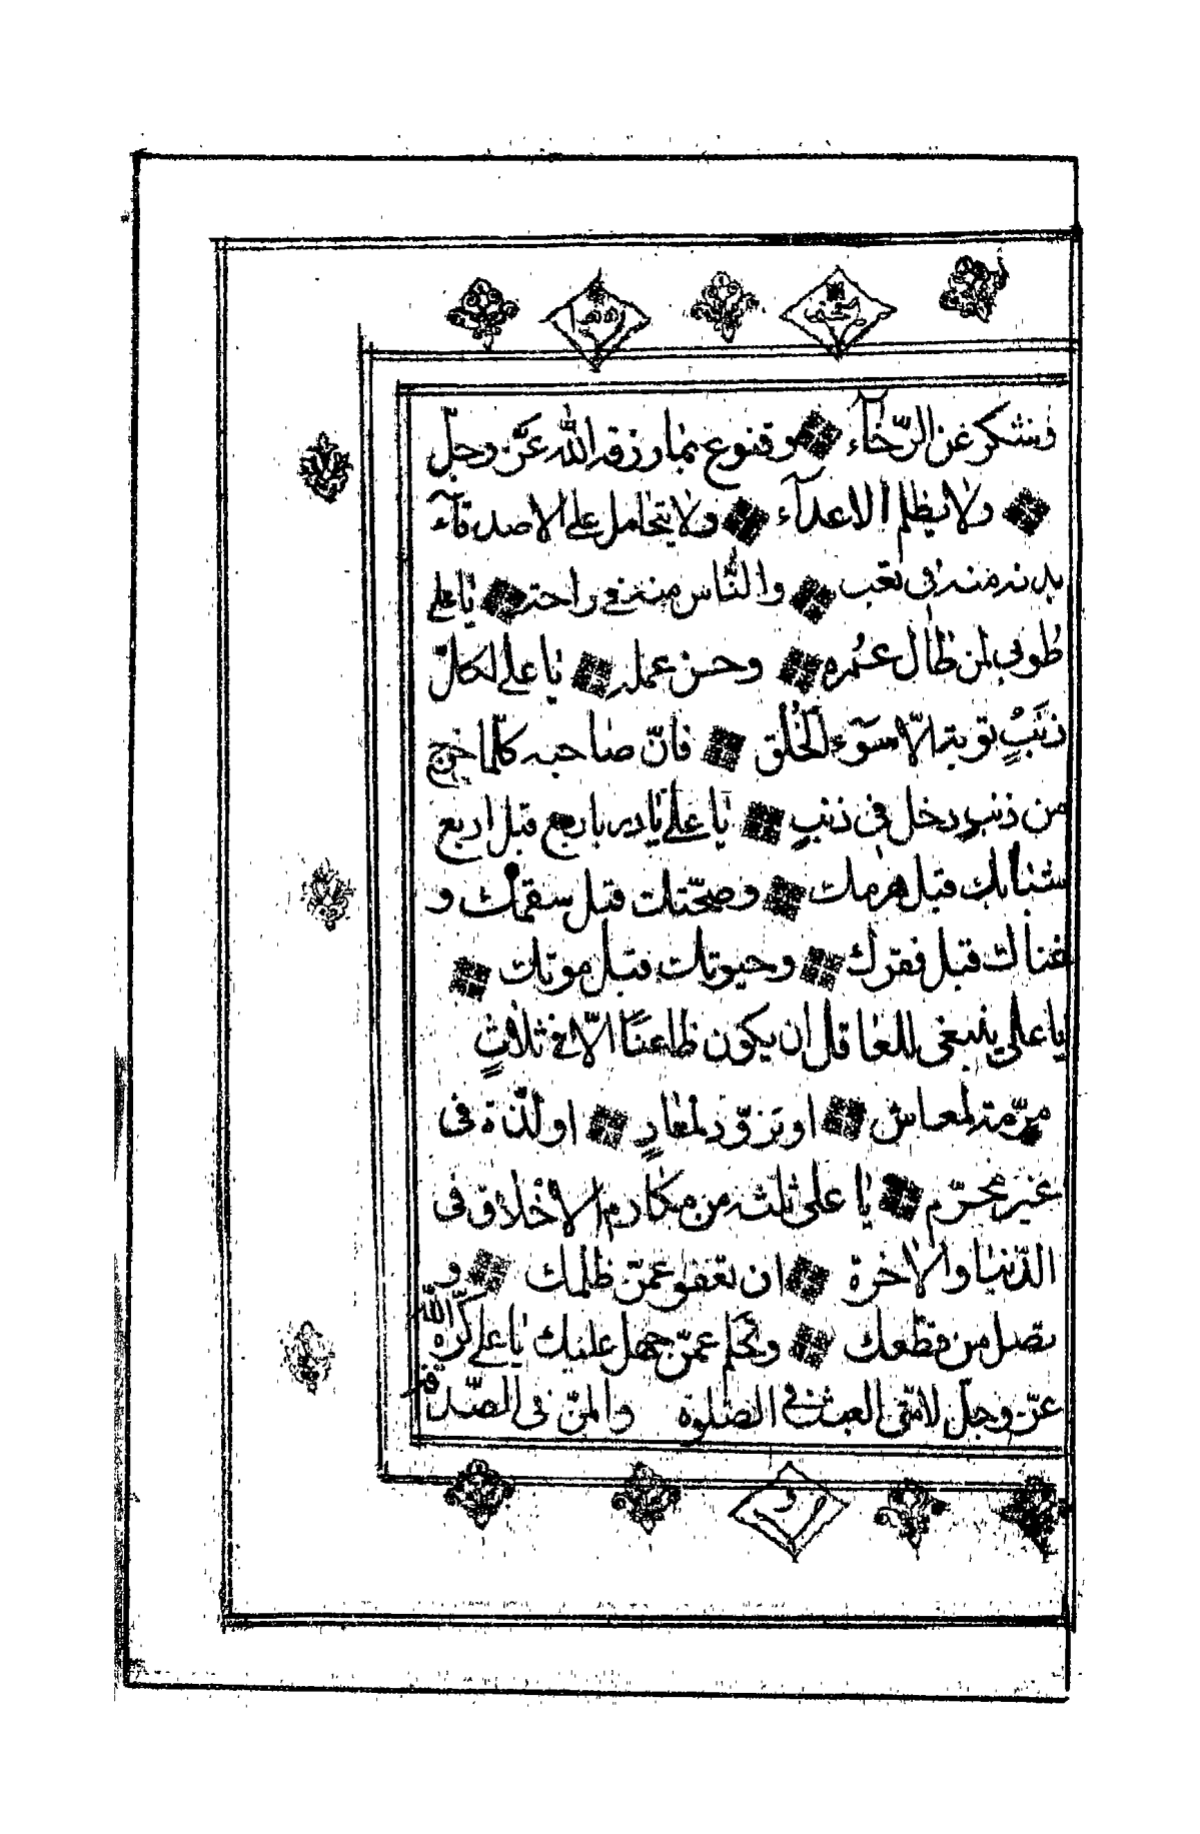 وشكر عن الرّخآء وقنوع بما رزقه اللّه عزّ وجلّ
ولا يظلم الاعدآء ولا يتحامل على الاصدقآء
بدنه منه فى تعب والنّاس منه فى راحة يا على
طوبى لمن طال عمره وحسن عمله يا على لكلّ
ذنبٍ توبة الّا سوء الخُلق فانّ صاحبه كلّما خرج
من ذنبٍ دخل فى ذنبٍ يا على بادر باربع قبل اربع
شبابك قبل هرمك وصحّتك قبل سقمك و
غناك قبل فقرك وحيوتك قبل موتك
يا على ينبغى للعاقل ان يكون ظاعنًا الّا فى ثلاثٍ
مرّمة لمعاش او تزوّد لمعادٍ او لذّة فى
غير محرّم يا على ثلثه من مكارم الاخلاق فى
الدّنيا والاخرة ان تعفو عمّن ظلمك و
تصل من قطعك وتحلم عمّن جهل عليك يا على كره اللّه
عزّ وجلّ لامّتى العبث فى الصّلوة والمنّ فى الصّدقه